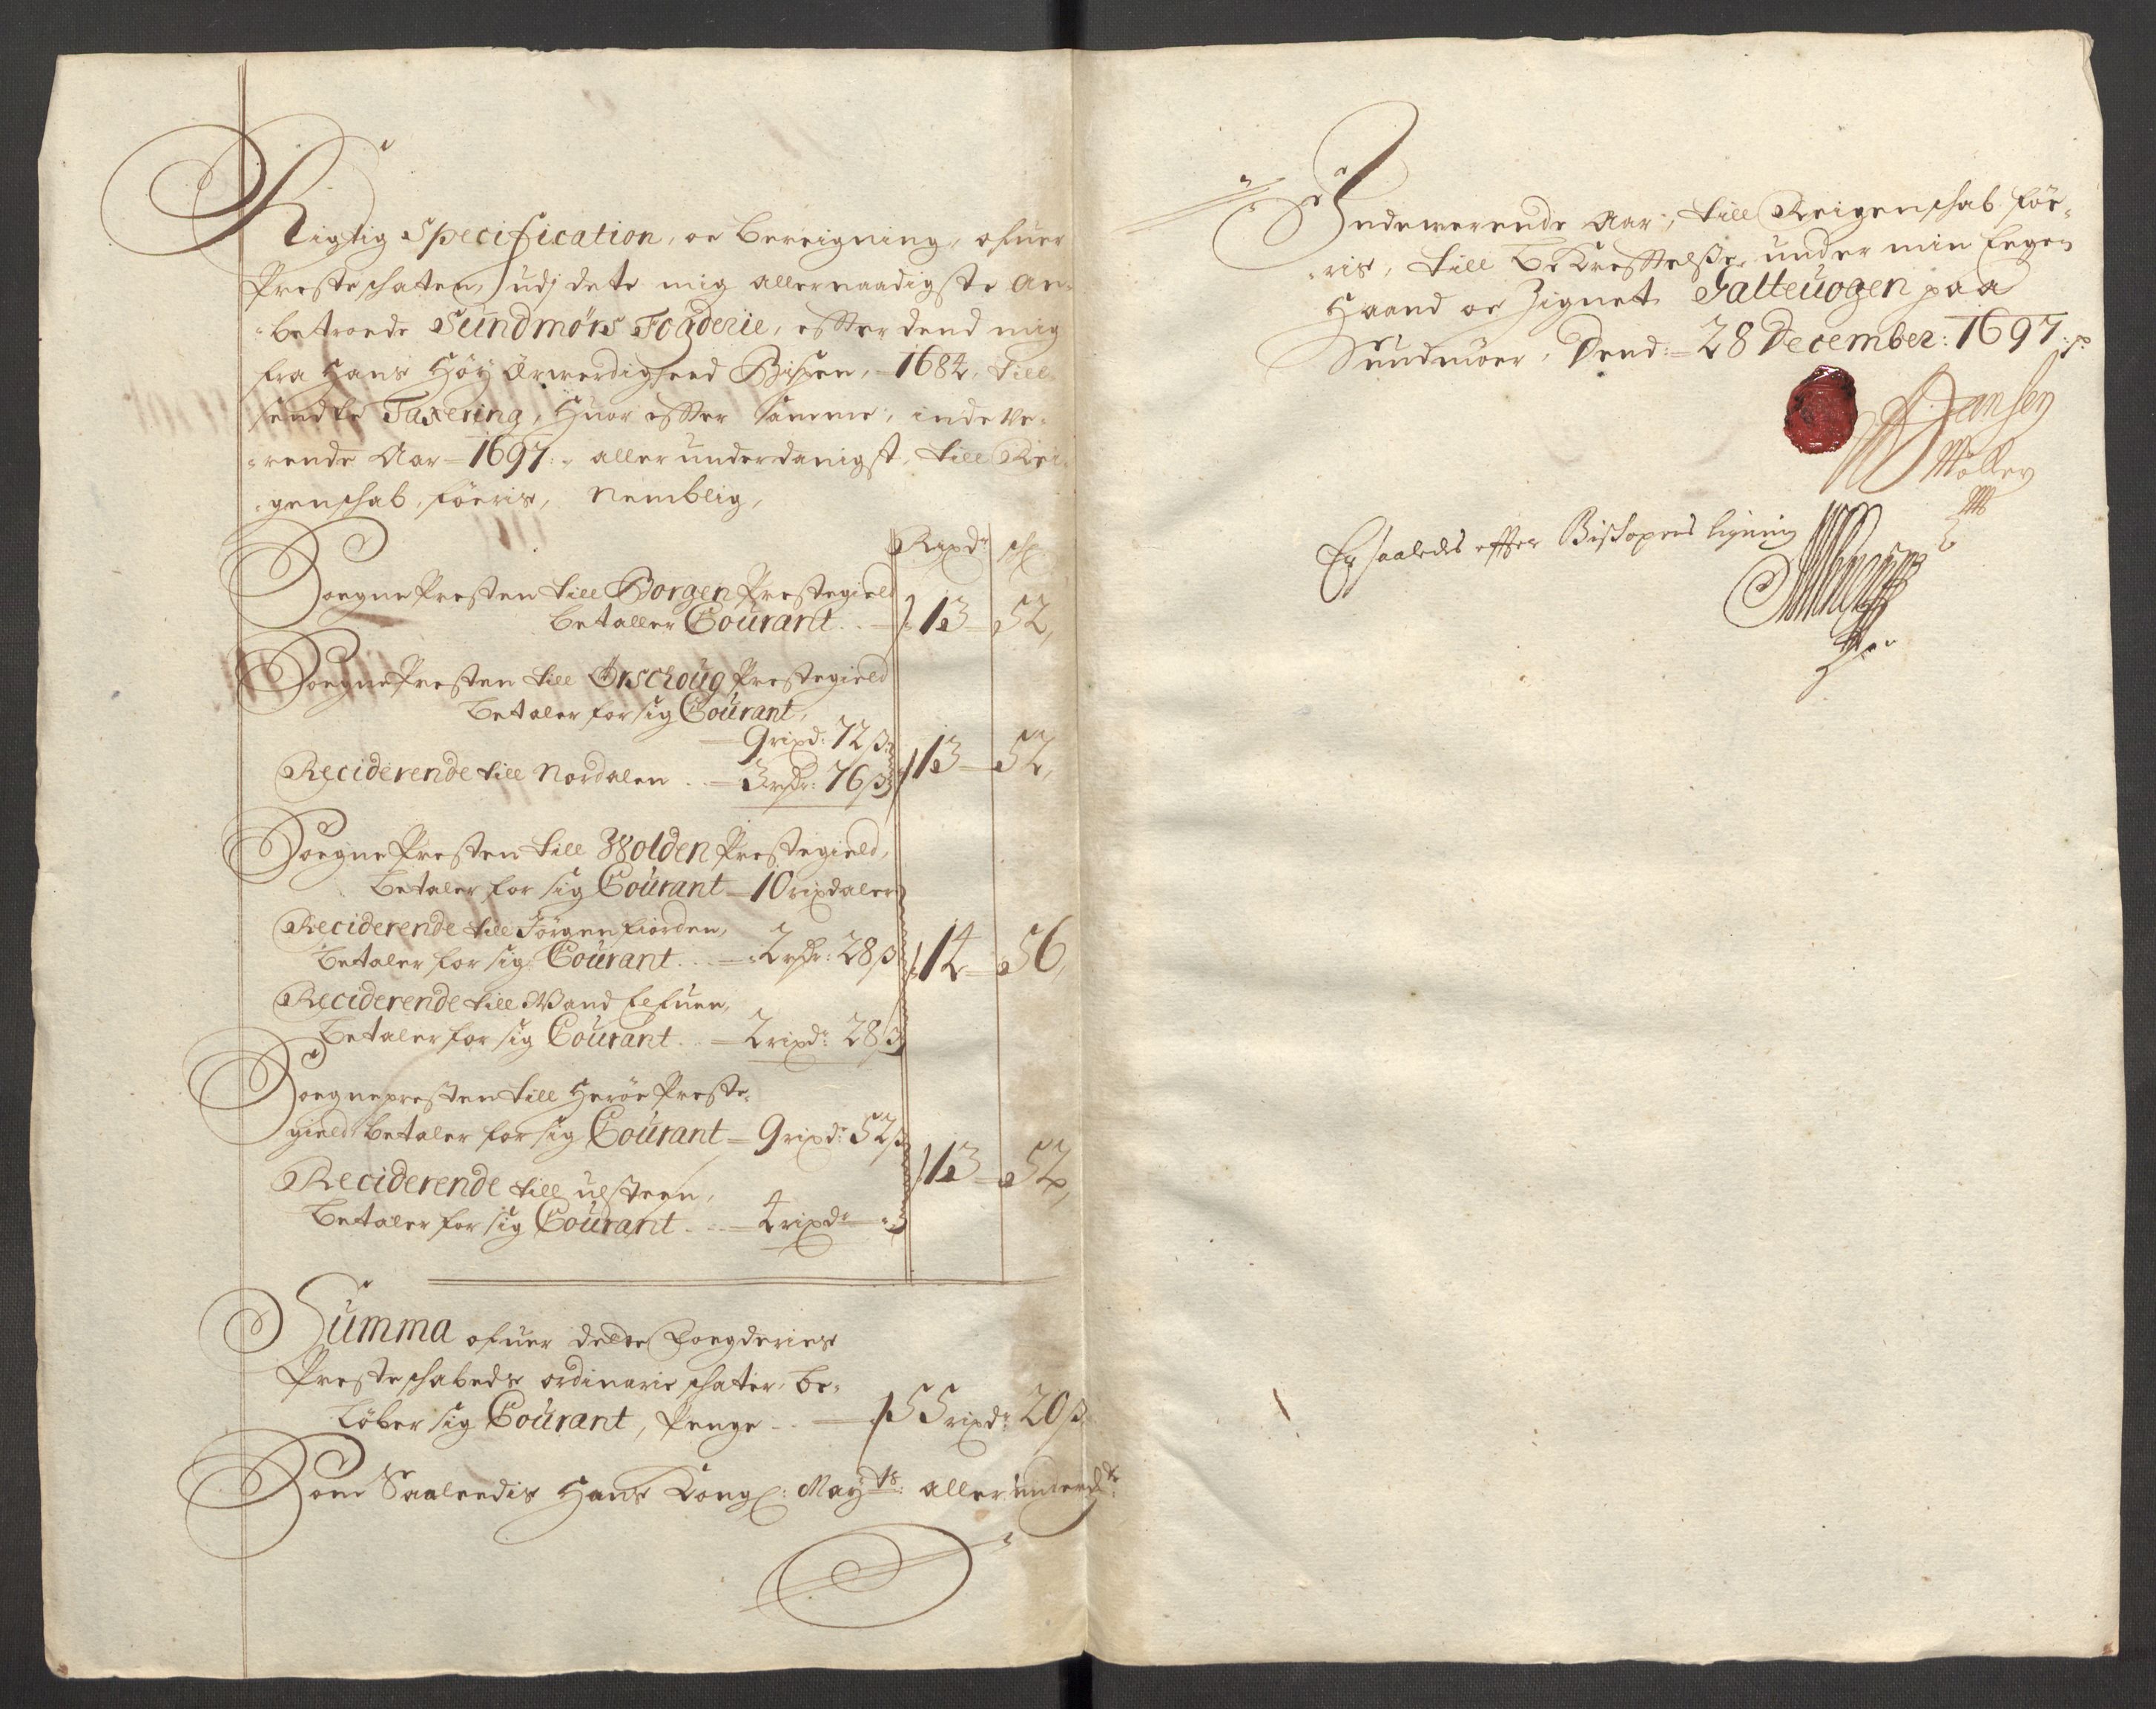 Rigtig Specification, oc bereigning, ofuer
Presteschaten, udj dete mig allernaadigste an-
betroede Sundmørs Fogderie, effter dend mig
fra Hans Høy Ærwerdigheed Bispen, 1684, till
sendte Taxering, Huor effter samme, indeve-
rende Aar 1697. allerunderdanigst, till Rei-
genschab, føeris, Nemblig,
Rixdr sk
SoegnePresten till Borgen Prestegield
betaller Courant .. 13 52,
SoegnePresten till Ørschoug Prestegield
betaler for sig Courant,
9 rixd: 72 ß
Reciderende till Nordalen .. 3 rdr: 76 ß 13 52,
SoegnePresten till Wolden Prestegield,
betaler for sig Courant 10 rixdaler
Reciderende till Jørgenfiorden,
betaler for sig Courant .. 2 rdr: 28 ß 14 56,
Reciderende till Wand Elfuen,
betaler for sig Courant .. 2 rixdr 28 ß
Soegnepresten till Herøe Preste-
gield betaler for sig Courant 9 rixdr 52 ß
13 52,
Reciderende till ulsteen,
betaler for sig Courant .. 4 rixdr - ß
Summa ofuer dette Foegderies
Presteschabeds ordinarie schater, be-
løber sig Courant, Penge .. 55 rixdr 20 ß
Som Saaleedis Hans Kongl: Mayts: allerunderdst:
Indewerende Aar, till Reigenschab før-
ris, till Bekrefftelße under min Egen
Haand oc Zignet Saltevogen paa
Sundmøer, Dend: 28 December: 1697
Hansen
Møller
Er saaledis effter Bischopens ligning